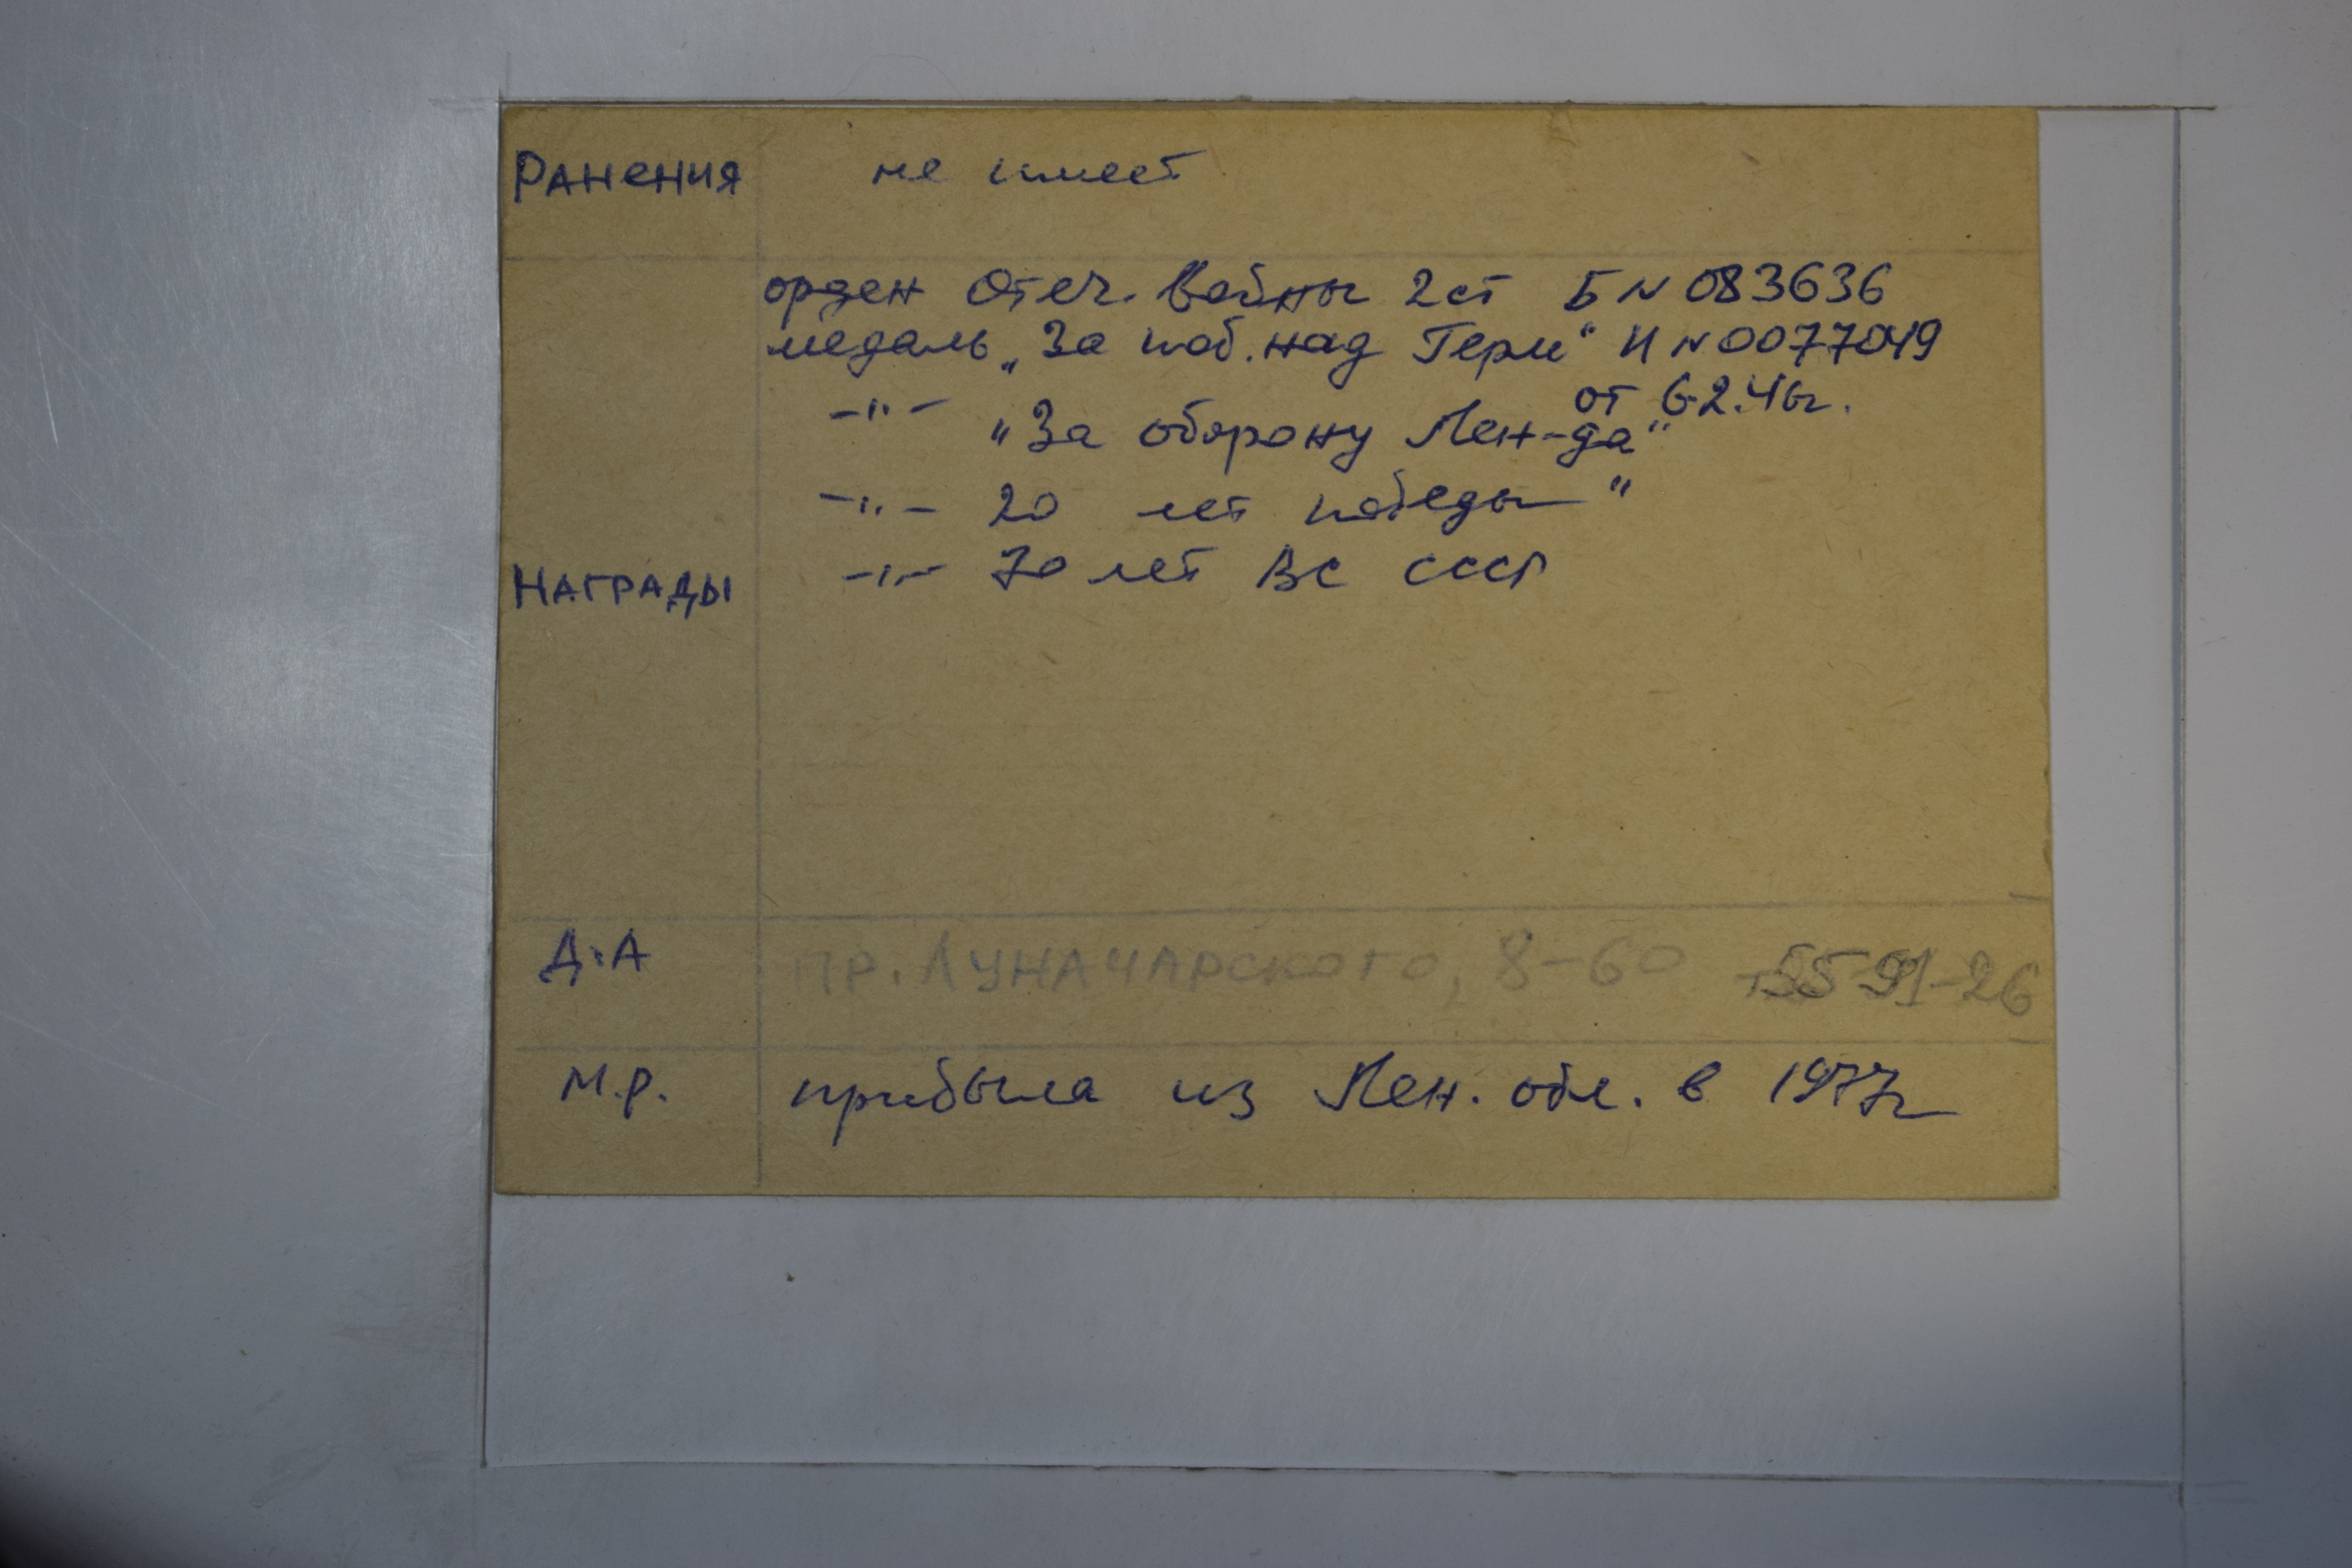 РАНЕНИЯ не имеет
орден Отеч. Войны 2ст Б N 083636
медаль „За поб. над Герм“ И N 0077049
от 6.2.46г.
-"- "За оборону Лен-да"
-"- 20 лет победы"
-"- 70 лет ВС СССР
НАГРАДЫ
Д.А ПР. ЛУНАЧАРСКОГО, 8-60 т.55-91-26
М.Р. прибыла из Лен. обл. в 1977г